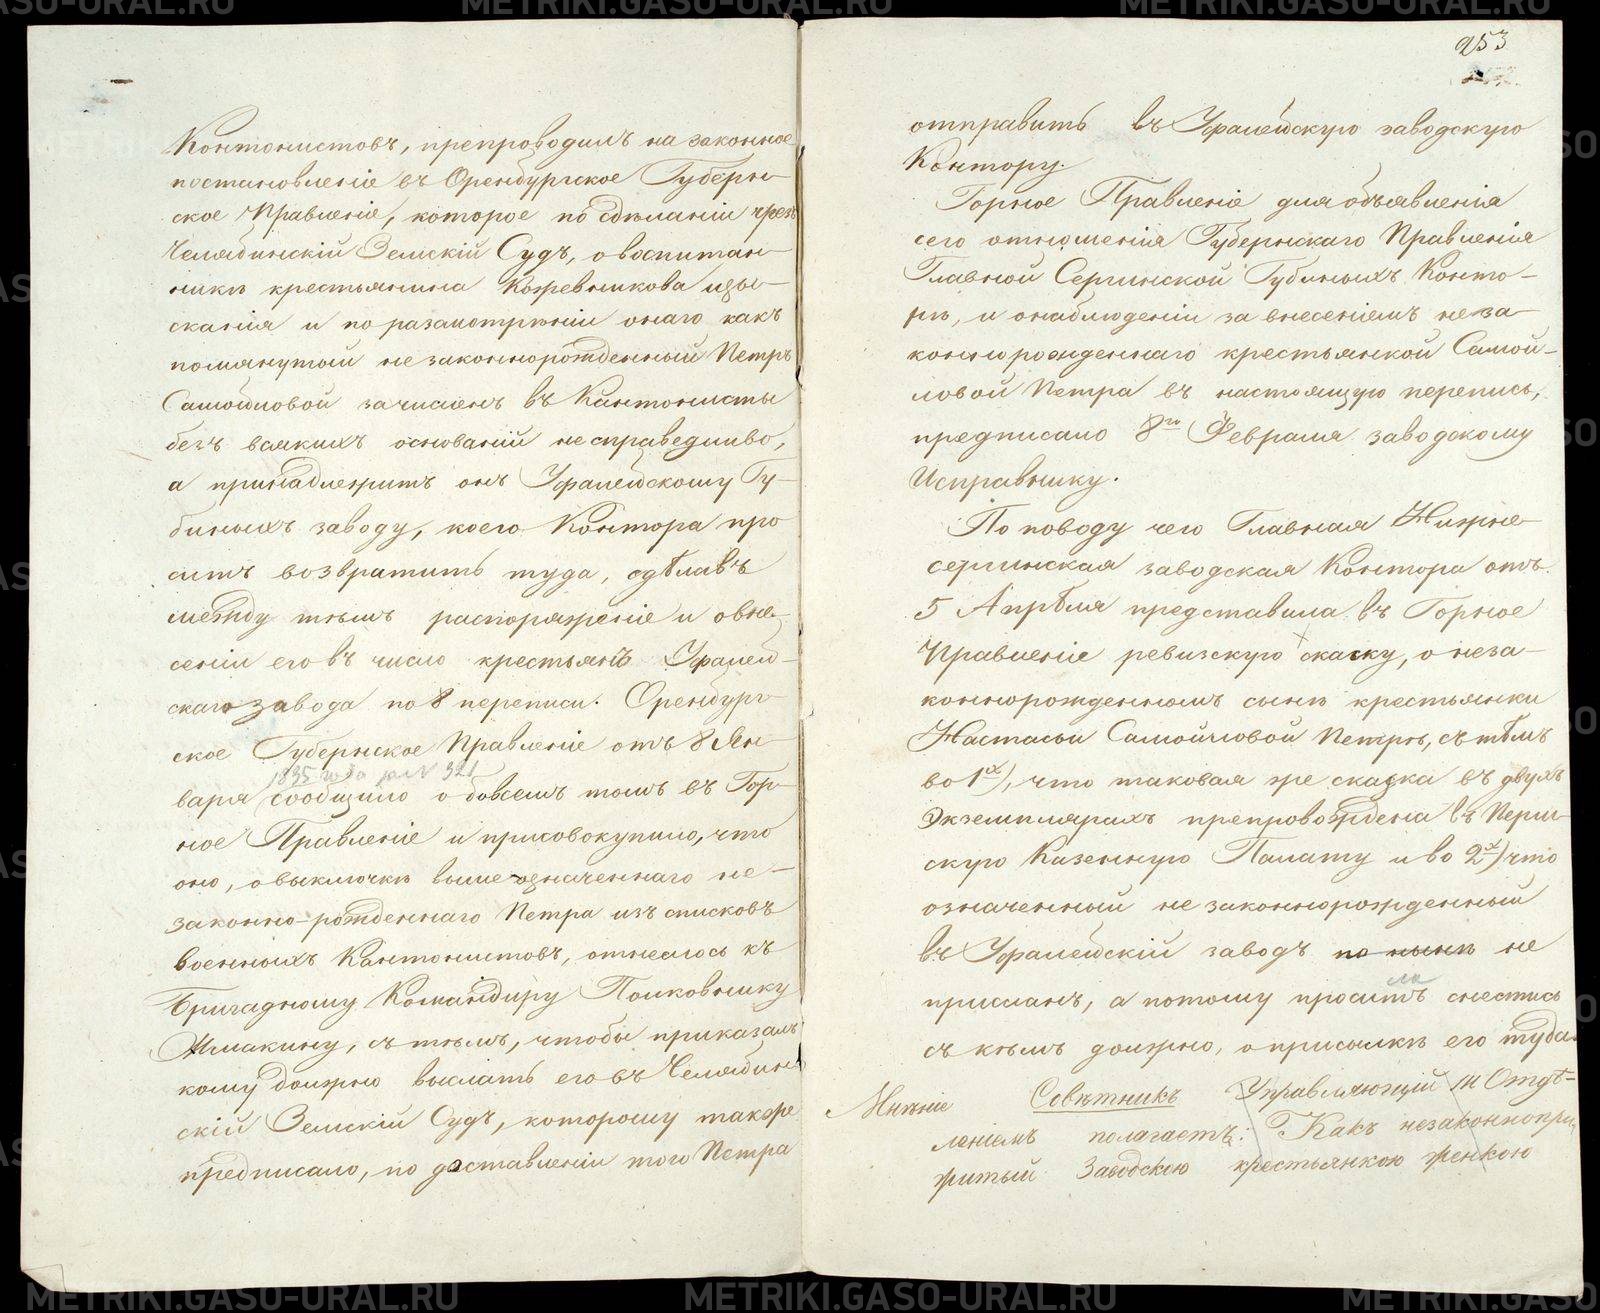 Контонистовъ, препроводилъ на законное
постановленіе въ Оренбургское Губерн-
ское Правленіе, которое по сдѣланіи чрезъ
Челябинскій Земскій Судъ, о воспитан-
никѣ крестьянина Кожевникова изы-
сканія и по разсмотрѣніи онаго какъ
помянутой не законнорожденный Петръ
Самойловой зачисленъ въ Кантонисты
безъ всякихъ основаній несправедливо,
а принадлежитъ онъ Уфалейскому Гу-
биныхъ заводу, коего Контора про
ситъ возвратить туда, сдѣлавъ
между тѣмъ распоряженіе и о вне-
сеніи его въ число крестьянъ Уфалей-
скаго завода по 8 переписи. Оренбург-
ское Губернское Правленіе отъ 8 Ян-
1835 года за № 321
варя сообщило о бо всемъ томъ въ Гор-
ное Правленіе и присовокупило, что
оно, о выключкѣ выше означеннаго не-
законно-рожденнаго Петра изъ списковъ
военныхъ Кантонистовъ, отнеслось къ
Бригадному Командиру Полковнику
Жмакину, съ тѣмъ, чтобы приказалъ
кому должно выслать его въ Челябин-
скій Земскій Судъ, которому также
предписало, по доставленіи того Петра
253
отправить въ Уфалейскую заводскую
Контору.
Горное Правленіе для объявленія
сего отношенія Губернскаго Правленія
Главной Сергинской Губиныхъ Конто-
рѣ, и о наблюденіи за внесеніемъ неза-
коннорожденнаго крестьянкой Самой-
ловой Петра въ настоящую перепись,
предписало 8го Февраля заводскому
Исправнику.
По поводу чего Главная Нижне-
сергинская заводская Контора отъ
5 Апрѣля представила въ Горное
Правленіе ревизскую скаску, о неза-
коннорожденномъ сынѣ крестьянки
Настасьи Самойловой Петрѣ, съ тѣмъ
во 1х), что таковая же сказка въ двухъ
Экземплярахъ препровождена въ Перм-
скую Казенную Палату и во 2х) что
означенный не законнорожденный
въ Уфалейскій заводъ по нынѣ не
присланъ, а потому проситъ снестись
ла
съ кѣмъ должно, о присылкѣ его туда.
Мнѣніе Совѣтникъ Управляющій III Отдѣ-
леніемъ полагаетъ: Какъ незаконнопри-
житый Заводскою крестьянкою женкою